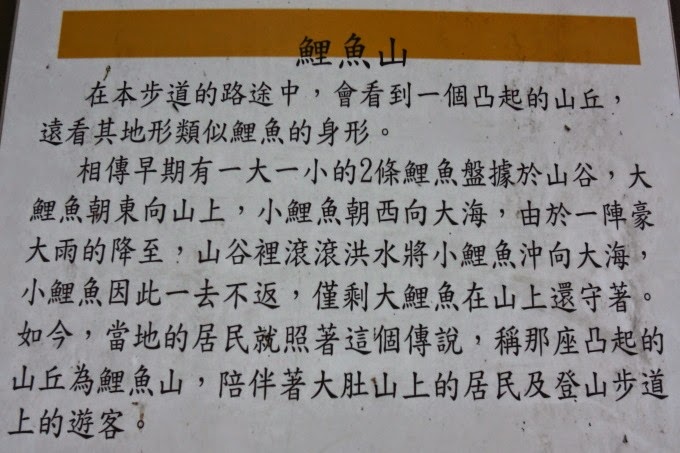 鯉魚山
在本步道的路途中，會看到一個凸起的山丘，
遠看其地形類似鯉魚的身形。
相傳早期有一大一小的2條鯉魚盤據於山谷，大
鯉魚朝東向山上，小鯉魚朝西向大海，由於一陣豪
大雨的降至，山谷裡滾滾洪水將小鯉魚沖向大海，
小鯉魚因此一去不返，僅剩大鯉魚在山上還守著。
如今，當地的居民就照著這個傳說，稱那座凸起的
山丘為鯉魚山，陪伴著大肚山上的居民及登山步道
上的遊客。